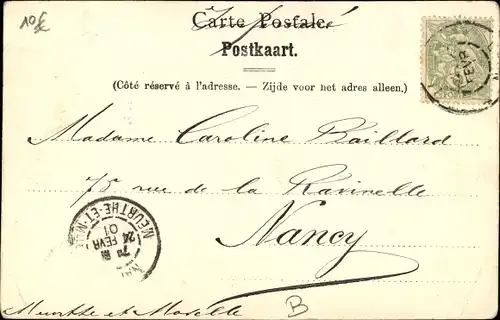 10£
Carte Postale.
Postkaart.
(Côté réservé à l'adresse. — Zijde voor het adres alleen.)
FEVR
Madame Caroline Baillard
75 rue de la Ravinelle
Nancy
MEURTHE-ET-M
24
FEVR
01
Meurthe et Moselle
B